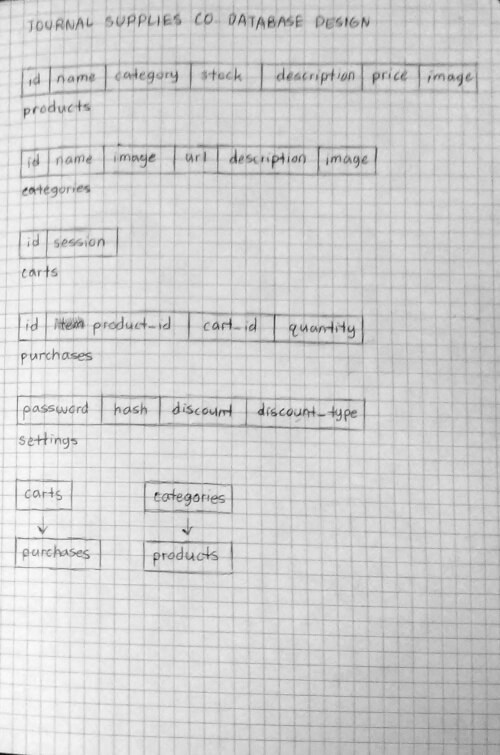 JOURNAL SUPPLIES CO. DATABASE DESIGN
id name category stock description price image
products
id name image url description image
categories
id session
carts
id product_id cart_id quantity
purchases
password hash discount discount_type
settings
carts categories
purchases products